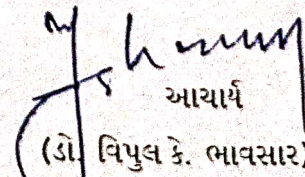 આચાર્ય
(ડૉ. વિપુલ કે. ભાવસાર)